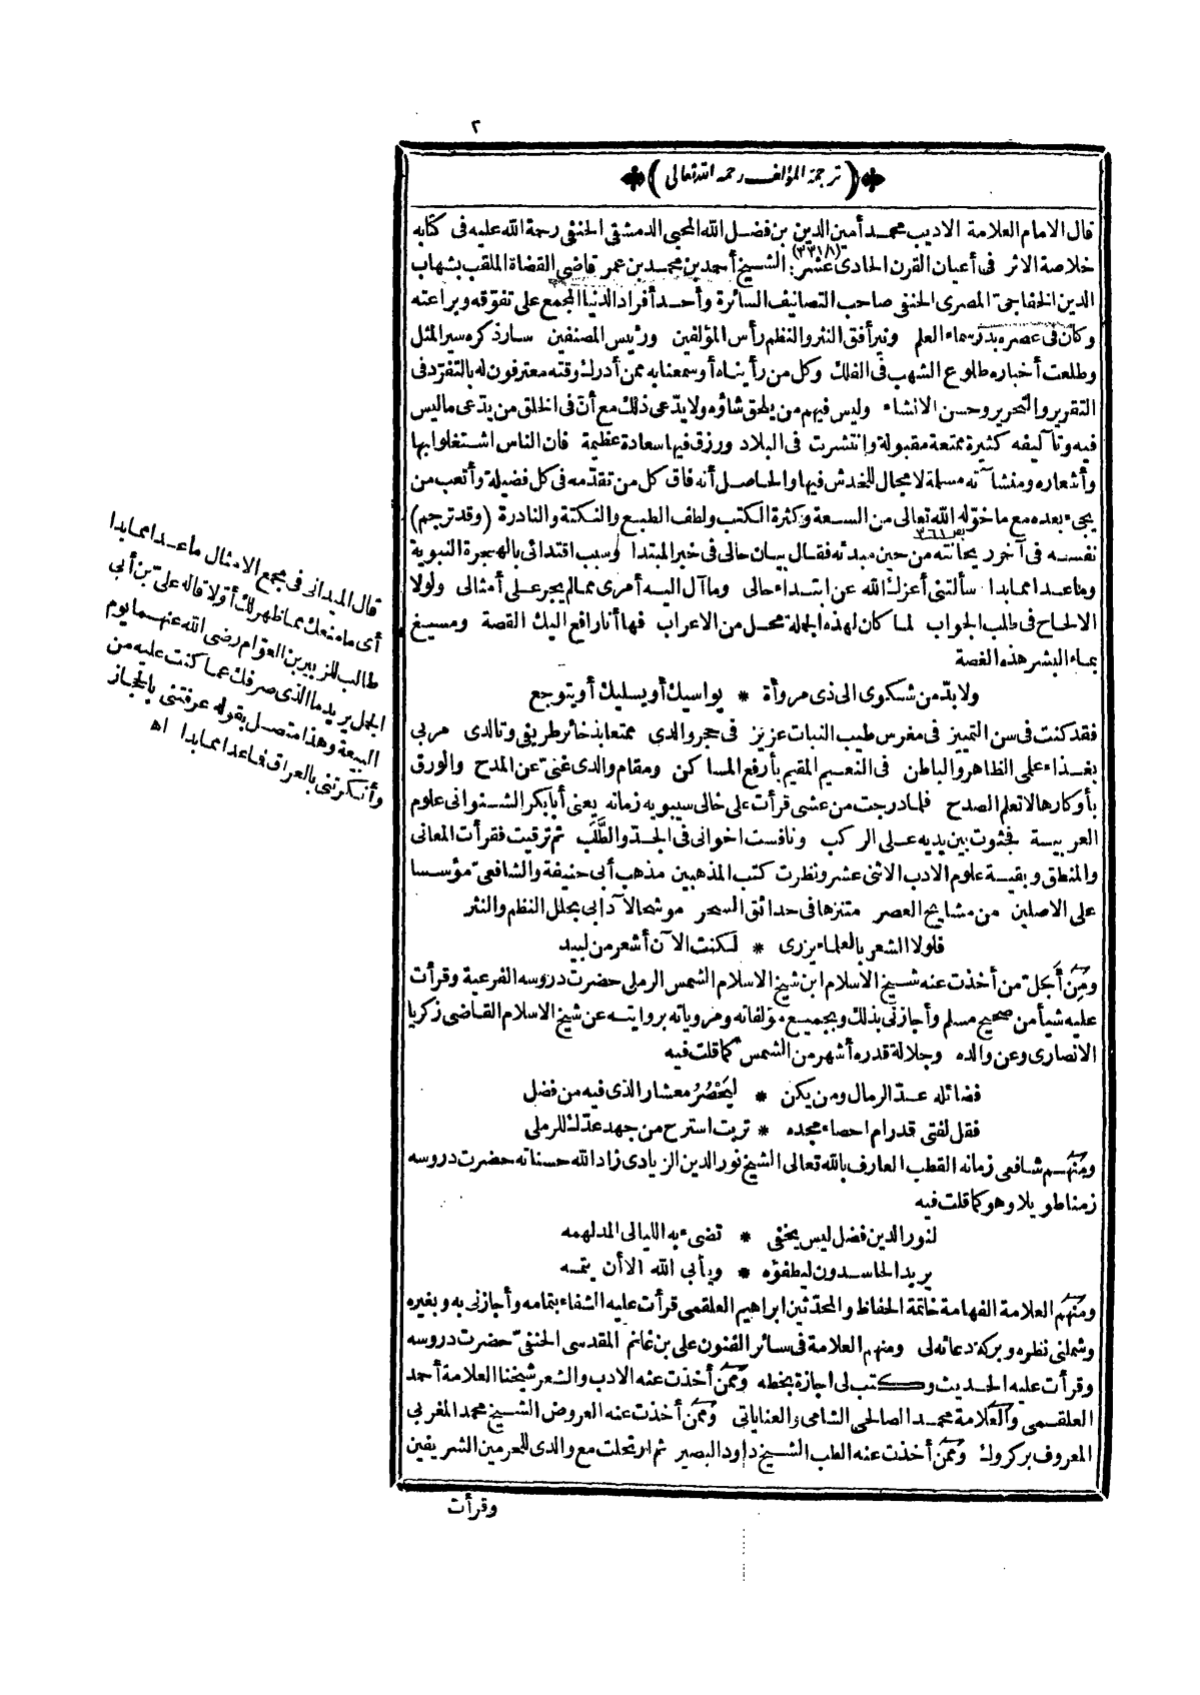 ٢
﴿ ترجمة المؤلف رحمه الله تعالى ﴾
قال الامام العلامة الاديب محمد أمين الدين بن فضل الله المحبى الدمشقى الحنفى رحمة الله عليه فى كتابه
خلاصة الاثر فى أعيان القرن الحادى عشر: الشيخ أحمد بن محمد بن عمر قاضى القضاة الملقب بشهاب
الدين الخفاجى المصرى الحنفى صاحب التصانيف السائرة وأحد أفراد الدنيا المجمع على تفوقه وبراعته
وكان فى عصره بدر سماء العلم ونير أفق النثر والنظم رأس المؤلفين ورئيس المصنفين سار ذكره سير المثل
وطلعت أخباره طلوع الشهب فى الفلك وكل من رأيناه أو سمعنا به ممن أدرك وقته معترفون له بالتفرد فى
التقرير والتحرير وحسن الانشاء وليس فيهم من يلحق شأوه ولا يدّعى ذلك مع أن فى الخلق من يدّعى ماليس
فيه وتآليفه كثيرة ممتعة مقبولة وانتشرت فى البلاد ورزق فيها سعادة عظيمة فان الناس اشتغلوا بها
وأشعاره ومنشآته مسلمة لا مجال للخدش فيها والحاصل أنه فاق كل من تقدّمه فى كل فضيلة وأتعب من
يجىء بعده مع ما خوّله الله تعالى من السعة وكثرة الكتب ولطف الطبع والنكتة والنادرة (وقد ترجم)
نفسه فى آخر ريحانته من حين مبدئه فقال بيان حالى فى خبر المبتدا وسبب اقتدائى بالهجرة النبوية
وما عدا مما بدا سألتنى أعزك الله عن ابتداء حالى وما آل اليه أمرى مما لم يجر على أمثالى ولولا
الالحاح فى طلب الجواب لما كان لهذه الجملة محل من الاعراب فها أنا رافع اليك القصة ومسيغ
بماء البشر هذه الغصة
ولا بدّ من شكوى الى ذى مروأة * يواسيك أو يسليك أو يتوجع
فقد كنت فى سن التمييز فى مغرس طيب النبات عزيز فى حجر والدى ممتعا بذخائر طريفى وتالدى مربى
بغذاء على الظاهر والباطن فى النعيم المقيم بأرفع المساكن ومقام والدى غنى عن المدح والورق
بأوكارها لاتعلم الصدح فلما درجت من عشى قرأت على خالى سيبويه زمانه يعنى أبا بكر الشنوانى علوم
العربية فجثوت بين يديه على الركب ونافست اخوانى فى الجد والطَّلَب ثم ترقيت فقرأت المعانى
والمنطق وبقية علوم الادب الاثنى عشر ونظرت كتب المذهبين مذهب أبى حنيفة والشافعى مؤسسا
على الاصلين من مشايخ العصر متنزها فى حدائق السحر موشحا لآدابى بحلل النظم والنثر
فلولا الشعر بالعلماء يزرى * لكنت الآن أشعر من لبيد
ومن أجل من أخذت عنه شيخ الاسلام ابن شيخ الاسلام الشمس الرملى حضرت دروسه الفرعية وقرأت
عليه شيأ من صحيح مسلم وأجازنى بذلك وبجميع مؤلفاته ومروياته بروايته عن شيخ الاسلام القاضى زكريا
الانصارى وعن والده وجلالة قدره أشهر من الشمس كما قلت فيه
فضائله عدّ الرمال ومن يكن * ليَحْصُرَ معشار الذى فيه من فضل
فقل لفتى قد رام احصاء مجده * تربت استرح من جهد عدّك للرملى
ومنهم شافعى زمانه القطب العارف بالله تعالى الشيخ نور الدين الزيادى زاد الله حسناته حضرت دروسه
زمنا طويلا وهو كما قلت فيه
لنور الدين فضل ليس يخفى * تضىء به الليالى المدلهمه
يريد الحاسدون ليطفؤه * ويأبى الله الا أن يتمه
ومنهم العلامة الفهامة خاتمة الحفاظ والمحدّثين ابراهيم العلقمى قرأت عليه الشفاء بتمامه وأجازنى به وبغيره
وشملنى نظره وبركة دعائه لى ومنهم العلامة فى سائر الفنون على بن غانم المقدسى الحنفى حضرت دروسه
وقرأت عليه الحديث وكتب لى اجازة بخطه وممن أخذت عنه الادب والشعر شيخنا العلامة أحمد
العلقمى والعلامة محمد الصالحى الشامى والعناياتى وممن أخذت عنه العروض الشيخ محمد المغربى
المعروف بركروك وممن أخذت عنه الطب الشيخ داود البصير ثم ارتحلت مع والدى للحرمين الشريفين
وقرأت
قال الميدانى فى مجمع الامثال ما عدا مما بدا
أى ما منعك مما ظهر لك أوّلا قاله علىّ بن أبى
طالب للزبير بن العوّام رضى الله عنهما يوم
الجمل يريد ما الذى صرفك عما كنت عليه من
البيعة وهذا متصل بقوله عرفتنى بالحجاز
وأنكرتنى بالعراق فما عدا مما بدا اه